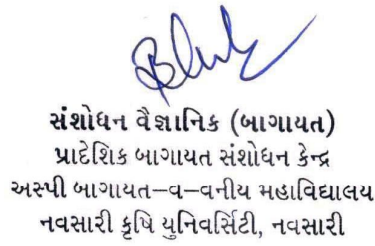 સંશોધન વૈજ્ઞાનિક (બાગાયત)
પ્રાદેશિક બાગાયત સંશોધન કેન્દ્ર
અસ્પી બાગાયત–વ–વનીય મહાવિદ્યાલય
નવસારી કૃષિ યુનિવર્સિટી, નવસારી